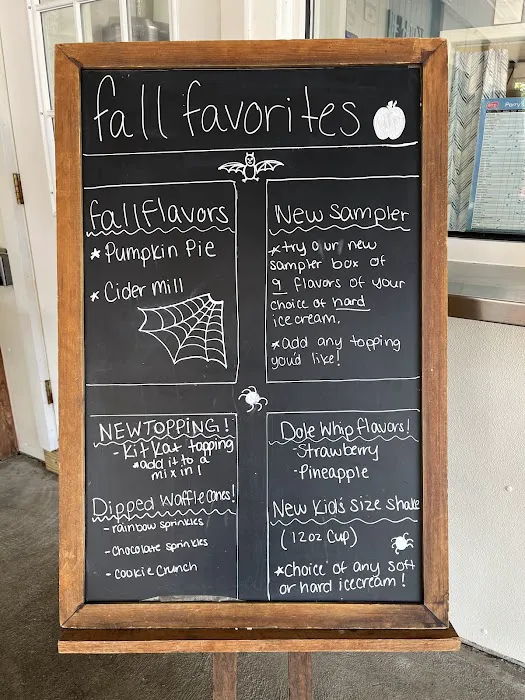 fall favorites
fall Flavors
* Pumpkin Pie
* Cider Mill
New Sampler
* try our new
sampler box of
9 flavors of your
choice of hard
ice cream.
* add any topping
you'd like!
NEW TOPPING!
- Kit Kat topping
* add it to a
mix in!
Dipped Waffle Cones!
- rainbow sprinkles
- chocolate sprinkles
- cookie crunch
Dole Whip flavors!
- Strawberry
- Pineapple
New Kid's Size Shake
(12oz Cup)
* Choice of any soft
or hard icecream!